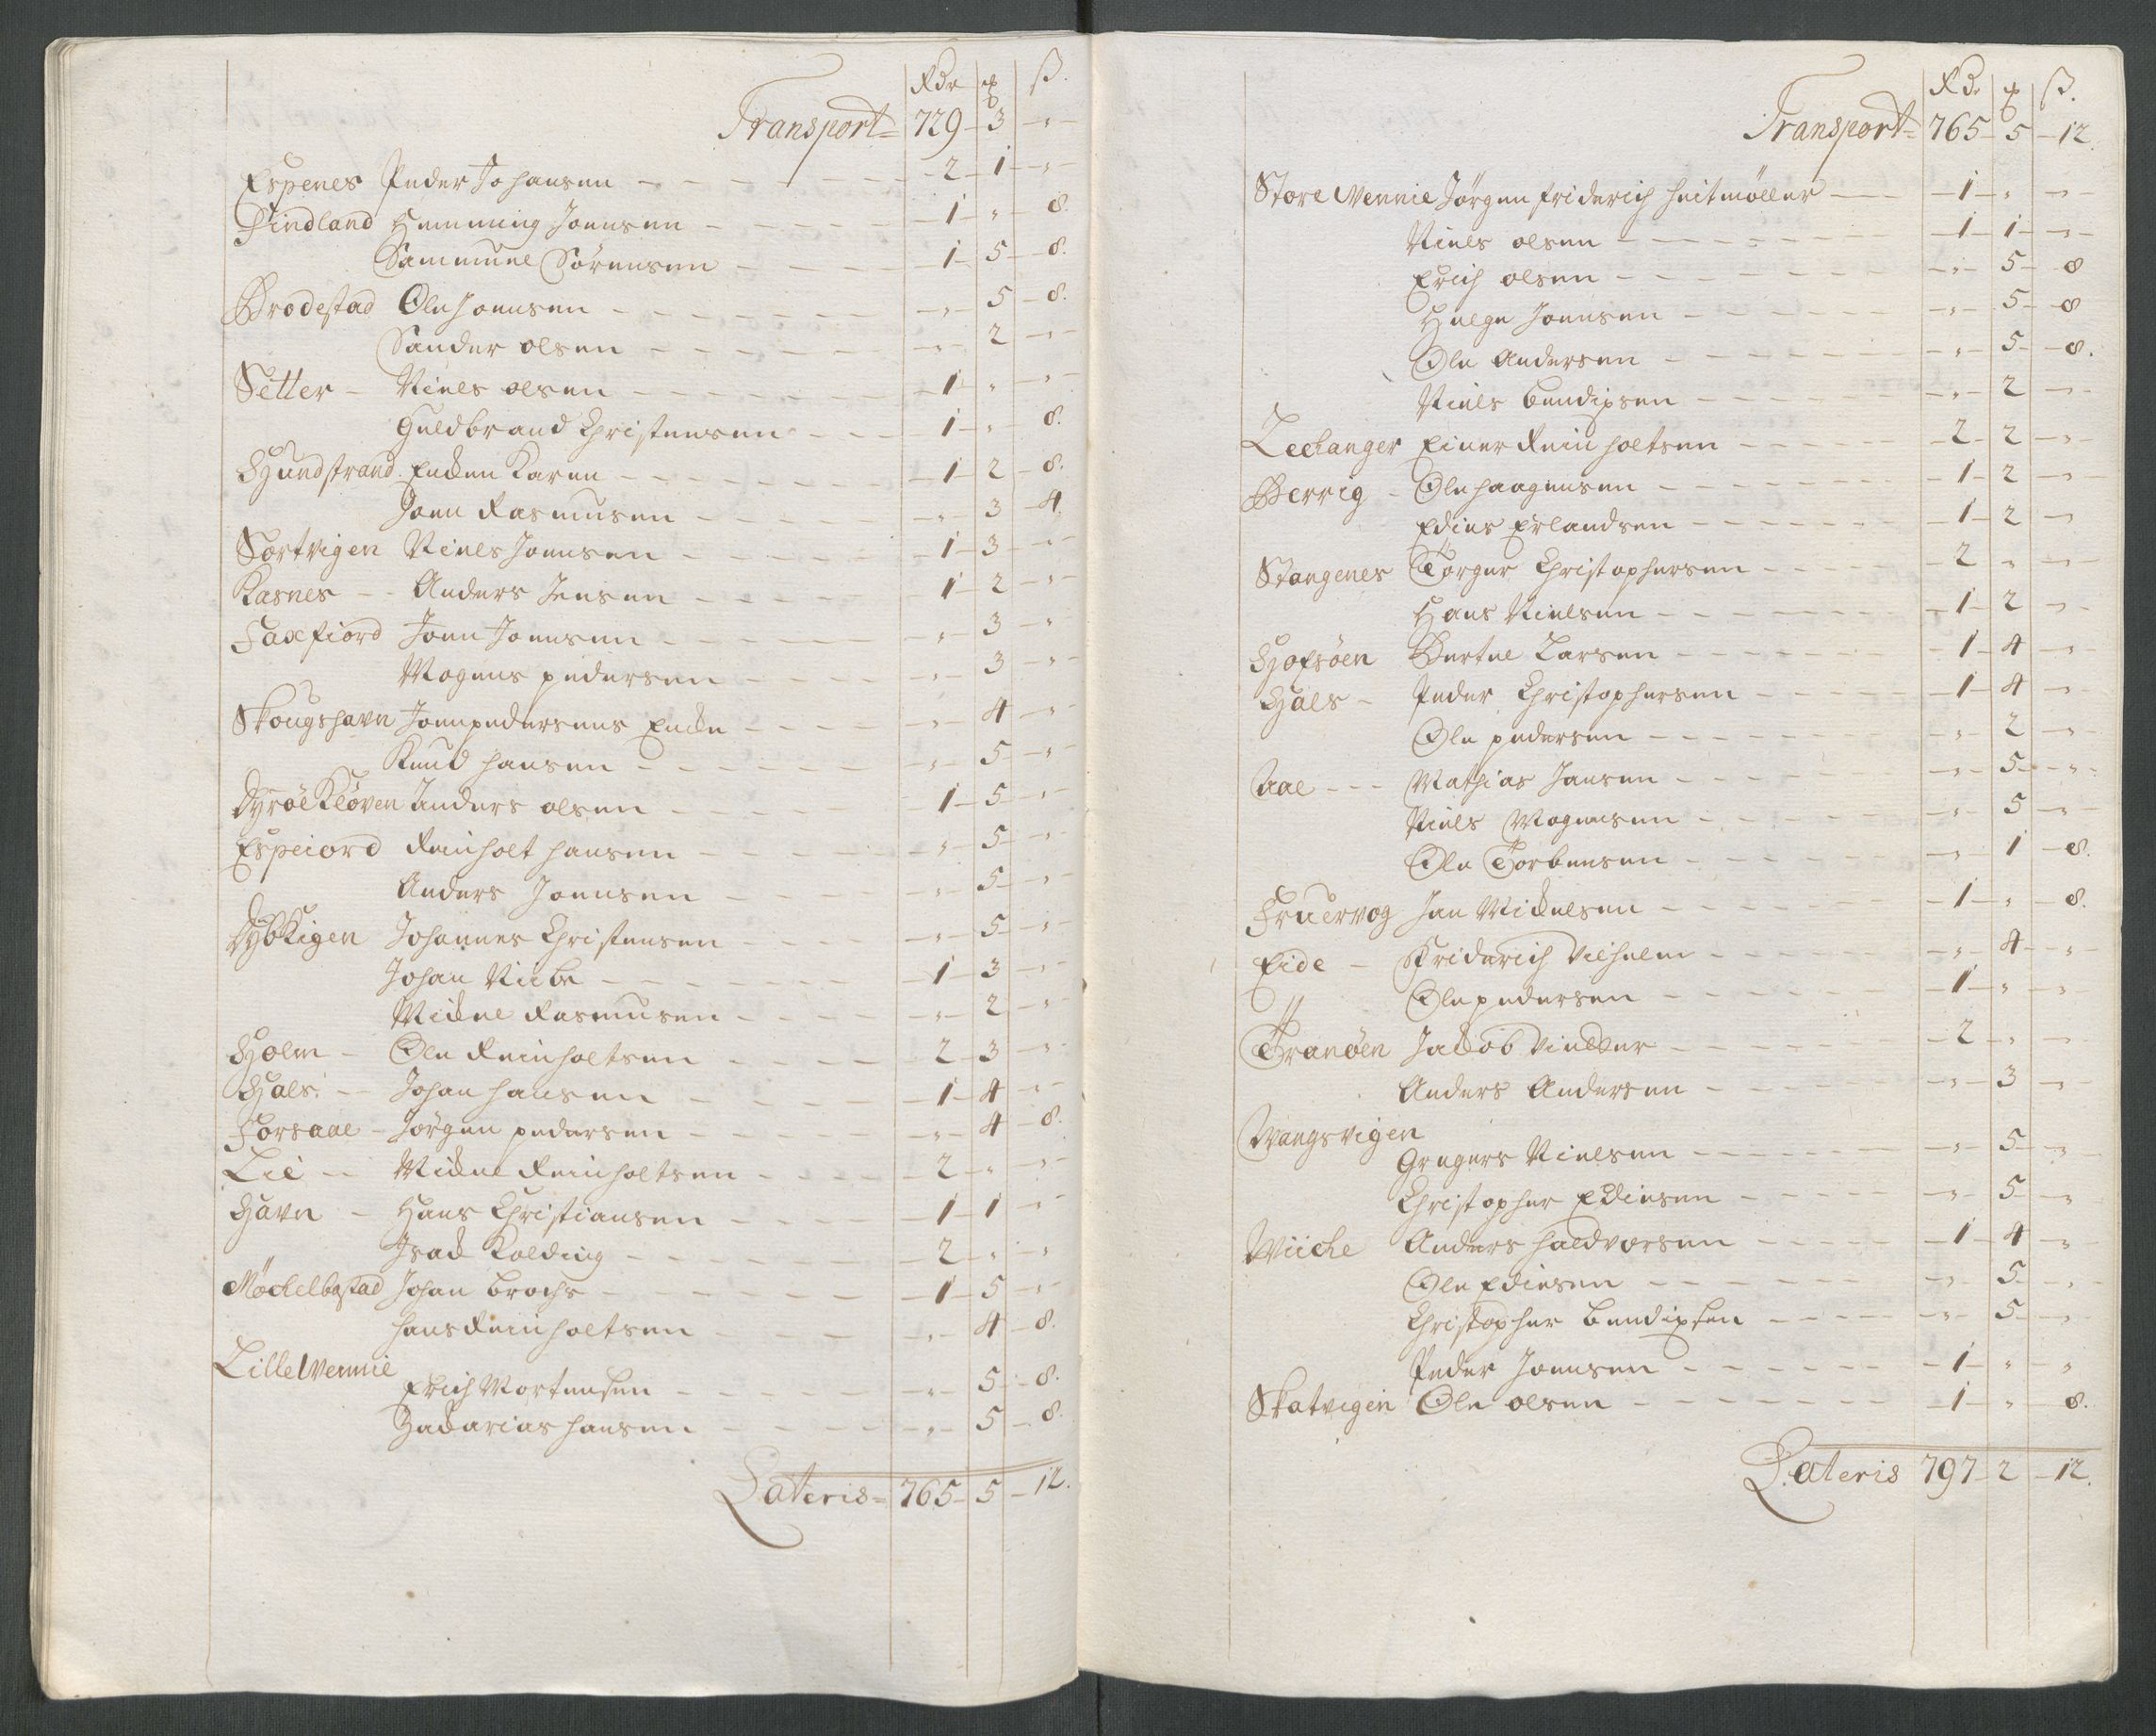 Rdr ꝳ ß.
Transport = 729 - 3 - „ -
Espenes Peder Johansen - 2 - 1 - „ -
Findland Hemming Joensen - 1 - „ - 8.
Sammuel Sörensen - 1 - 5 - 8.
Brodestad Ole Joensen - „ - 5 - 8.
Sander olsen - „ - 2 - „ -
Setter - Niels olsen - 1 - „ - „ -
Guldbrand Christensen - 1 - „ - 8.
Hundstrand Encken Karen - 1 - 2 - 8.
Joen Rasmusen - „ - 3 - 4.
Sortvigen Niels Joensen - 1 - 3 - „ -
Kasnes - Anders Jensen - 1 - 2 - „ -
Faxfiord Joen Joensen - „ - 3 - „
Mogens pedersen - „ - 3 - „ -
Skougshavn Joen pedersens Encke - „ - 4 - „ -
Knud hansen - „ - 5 - „ -
Dyröe Klöven Anders olsen - 1 - 5 - „ -
Espeiord Reinholt hansen - „ - 5 - „ -
Anders Joensen - „ - 5 - „ -
Dybvigen Johannes Christensen - „ - 5 - „ -
Johan Viibe - 1 - 3 - „ -
Mickel Rasmusen - „ - 2 - „ -
Holm - Ole Reinholtsen - 2 - 3 - „ -
Hals - Johan hansen - 1 - 4 - „ -
Forsaae - Jörgen pedersen - „ - 4 - 8.
Lie - Mickel Reinholtsen - 2 - „ - „ -
Havn - Hans Christiansen - 1 - 1 - „ -
Isack Kolding - 2 - „ - „
Möckelbostad Johan brochs - 1 - 5 - „ -
hans Reinholtsen - „ - 4 - 8.
Lille Wennie
Erich Mortensen - „ - 5 - 8.
Zackarias hansen - „ - 5 - 8.
Lateris = 765 - 5 - 12.
Rdr ꝳ ß.
Transport = 765 - 5 - 12
Store Wennie Jörgen friderich heitmöller - 1 - „ - „ -
Niels olsen - 1 - 1 - „ -
Erich olsen - „ - 5 - 8
Helge Joensen - „ - 5 - 8
Ole Andersen - „ - 5 - 8.
Niels bendixsen - „ - 2 - „ -
Leckanger Einer Reinholtsen - 2 - 2 - „ -
Berrig - Ole haagensen - 1 - 2 - „ -
Edies Erlandsen - 1 - 2 - „ -
Stangenes Törger Christophersen - 2 - „ - „ -
Hans Nielsen - 1 - 2 - „ -
Hofsöen Bertel Larsen - 1 - 4 - „ -
Hals - Peder Christophersen - 1 - 4 - „ -
Ole pedersen - „ - 2 - „ -
Aae - Mathias Jansen - „ - 5 - „ -
Niels Mogensen - „ - 5 - „
Ole Torbensen - „ - 1 - 8.
Fruervog Jan Mickelsen - 1 - „ - 8.
Eide - Friderich Vilhelm - „ - 4 - „
〃 Ole pedersen - 1 - „ - „ -
Tranöen Jacob - 2 - „ - „ -
Anders Andersen - „ - 3 - „ -
Wangsvigen
Gregers Nielsen - „ - 5 - „ -
Christopher Ediesen - „ - 5 - „
Wiiche Anders haldvorsen - 1 - 4 - „
Ole Ediesen - „ - 5 - „ -
Christopher bendixsen - „ - 5 - „ -
Peder Joensen - 1 - „ - „
Skatvigen Ole olsen - 1 - „ - 8.
Lateris 797 - 2 - 12.